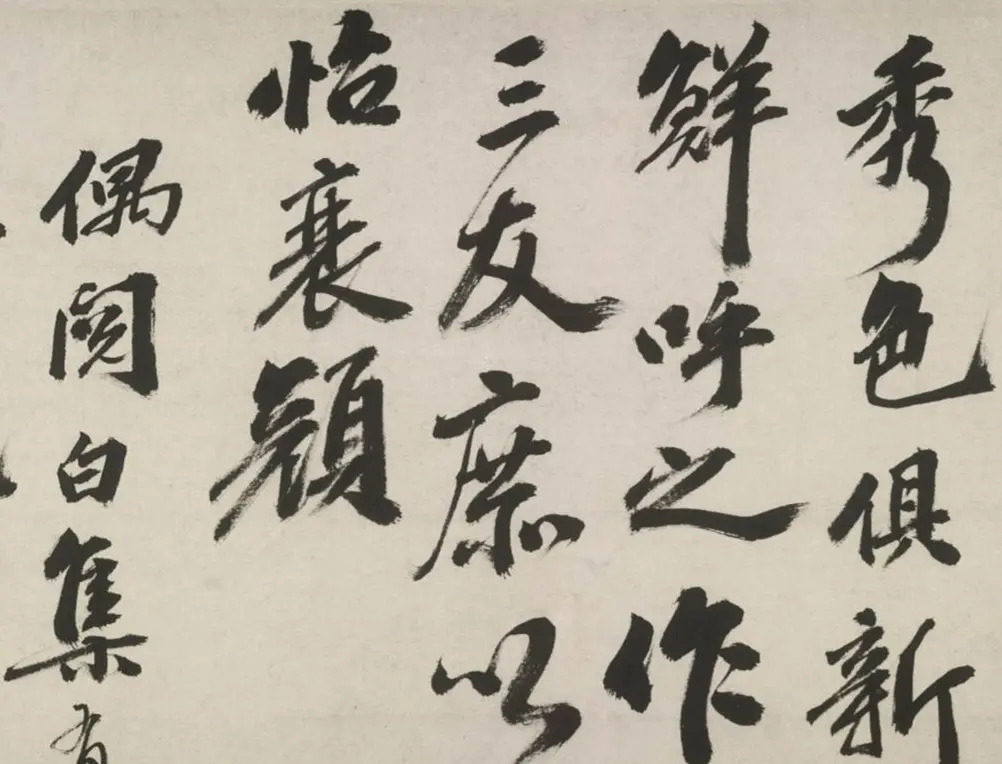 秀色俱新
鮮呼之作
三友庶以
怡衰顏
偶閱白集有